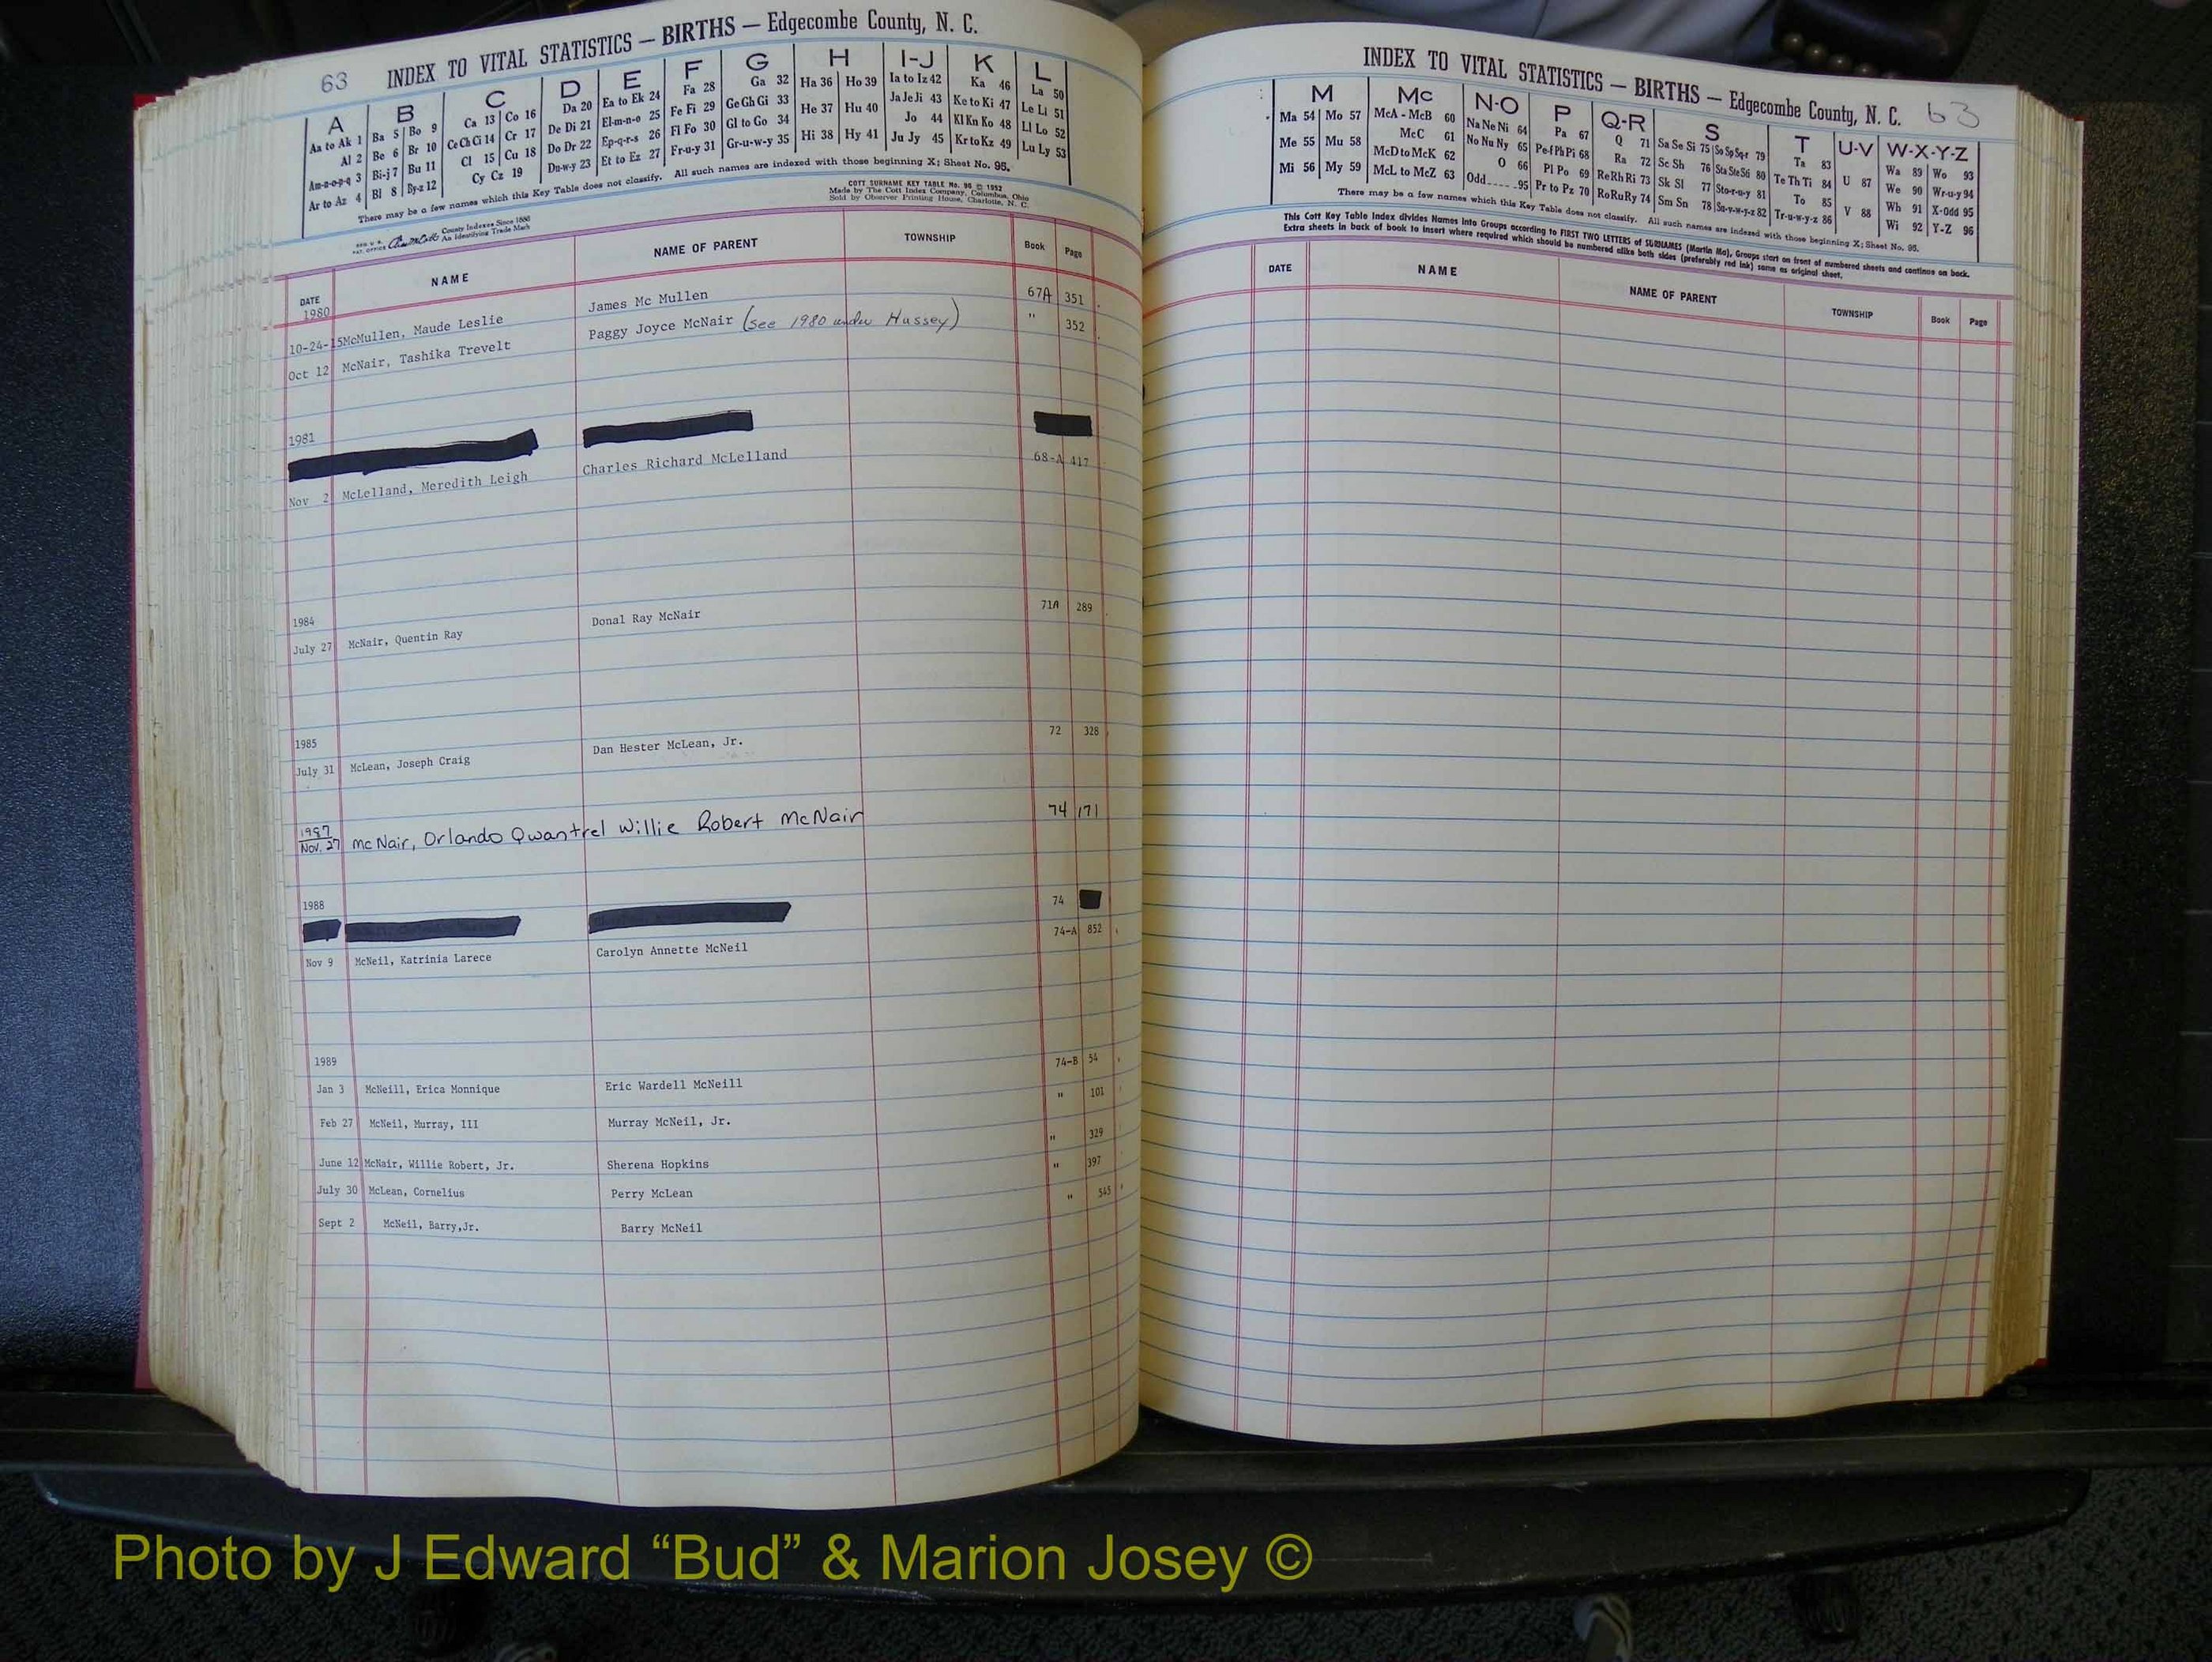 63 INDEX TO VITAL STATISTICS — BIRTHS — Edgecombe County, N. C.
A B C D E F G H I-J K L
Aa to Ak 1 Ba 5 Bo 9 Ca 13 Co 16 Da 20 Ea to Ek 24 Fa 28 Ga 32 Ha 36 Ho 39 Ia to Iz 42 Ka 46 La 50
Al 2 Be 6 Br 10 Ce Ch Ci 14 Cr 17 De Di 21 El-m-n-o 25 Fe Fi 29 Ge Gh Gi 33 He 37 Hu 40 Ja Je Ji 43 Ke to Ki 47 Le Li 51
Am-n-o-p-q 3 Bi-j 7 Bu 11 Cl 15 Cu 18 Do Dr 22 Ep-q-r-s 26 Fl Fo 30 Gl to Go 34 Hi 38 Hy 41 Jo 44 Kl Kn Ko 48 Ll Lo 52
Ar to Az 4 Bl 8 By-z 12 Cy Cz 19 Du-w-y 23 Et to Ez 27 Fr-u-y 31 Gr-u-w-y 35 Ju Jy 45 Kr to Kz 49 Lu Ly 53
There may be a few names which this Key Table does not classify. All such names are indexed with those beginning X; Sheet No. 95.
County Indexes Since 1888
An Identifying Trade Mark
COTT SURNAME KEY TABLE No. 96 © 1952
Made by The Cott Index Company, Columbus, Ohio
Sold by Observer Printing House, Charlotte, N. C.
DATE NAME NAME OF PARENT TOWNSHIP Book Page
1980
10-24-15 McMullen, Maude Leslie James Mc Mullen 67A 351
Oct 12 McNair, Tashika Trevelt Paggy Joyce McNair (see 1980 under Hussey) " 352
1981
Nov 2 McLelland, Meredith Leigh Charles Richard McLelland 68-A 417
1984
July 27 McNair, Quentin Ray Donal Ray McNair 71A 289
1985
July 31 McLean, Joseph Craig Dan Hester McLean, Jr. 72 328
1987
Nov. 27 McNair, Orlando Qwantrel Willie Robert McNair 74 171
1988 74
Nov 9 McNeil, Katrinia Larece Carolyn Annette McNeil 74-A 852
1989
Jan 3 McNeill, Erica Monnique Eric Wardell McNeill 74-B 54
Feb 27 McNeil, Murray, III Murray McNeil, Jr. " 101
June 12 McNair, Willie Robert, Jr. Sherena Hopkins " 329
July 30 McLean, Cornelius Perry McLean " 397
Sept 2 McNeil, Barry,Jr. Barry McNeil " 545
INDEX TO VITAL STATISTICS — BIRTHS — Edgecombe County, N. C. 63
M Mc N-O P Q-R S T U-V W-X-Y-Z
Ma 54 Mo 57 McA - McB 60 Na Ne Ni 64 Pa 67 Q 71 Sa Se Si 75 So Sp Sq-r 79 Ta 83 U 87 Wa 89 Wo 93
Me 55 Mu 58 McC 61 No Nu Ny 65 Pe-f Ph Pi 68 Ra 72 Sc Sh 76 Sta Ste Sti 80 Te Th Ti 84 V 88 We 90 Wr-u-y 94
Mi 56 My 59 McD to McK 62 O 66 Pl Po 69 Re Rh Ri 73 Sk Sl 77 Sto-r-u-y 81 To 85 Wh 91 X-Odd 95
McL to McZ 63 Odd 95 Pr to Pz 70 Ro Ru Ry 74 Sm Sn 78 Su-v-w-y-z 82 Tr-u-w-y-z 86 Wi 92 Y-Z 96
There may be a few names which this Key Table does not classify. All such names are indexed with those beginning X; Sheet No. 95.
This Cott Key Table Index divides Names into Groups according to FIRST TWO LETTERS of SURNAMES (Martin Ma), Groups start on front of numbered sheets and continue on back.
Extra sheets in back of book to insert where required which should be numbered alike both sides (preferably red ink) same as original sheet.
DATE NAME NAME OF PARENT TOWNSHIP Book Page
Photo by J Edward “Bud” & Marion Josey ©